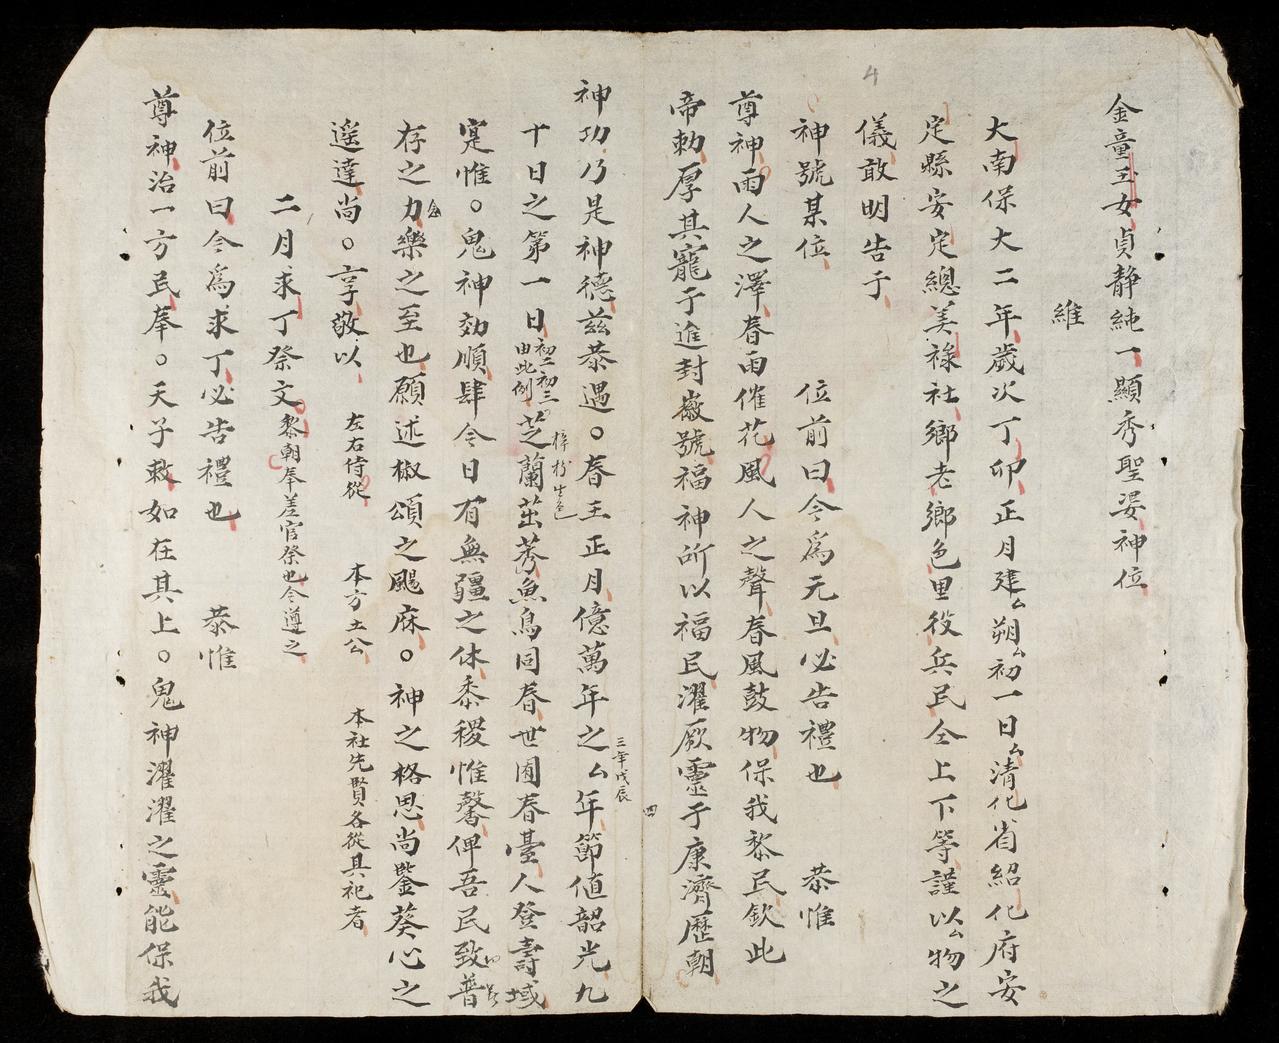 4
金童玉女貞靜純一顯秀聖婆神位
維
大南保大二年歲次丁卯正月建厶朔厶初一日厶清化省紹化府安
定縣安定總美祿社鄉老鄉色里役兵民仝上下等謹以厶物之
儀敢明告于
神號某位 位前曰今爲元旦必告禮也 恭惟
尊神雨人之澤春雨催花風人之聲春風鼓物保我黎民欽此
帝勅厚其寵于進封嶶號福神所以福民濯厥靈于康濟歷朝
四
神功乃是神德兹恭遇○春王正月億萬年之厶年節值韶光九
三年戊辰
十日之第一日初二初三由此例芝蘭茁莠魚鳥同春世囿春臺人登壽域
寔惟○鬼神効順肆今日有無疆之休黍稷惟馨俾吾民致普
存之力樂之至也願述椒頌之颺庥○神之格思尚鑒葵心之
遥達尚○享敬以 左右侍從 本方土公 本社先賢各從其祀者
二月求丁祭文黎朝奉差官祭也今遵之
位前曰今爲求丁必告禮也 恭惟
尊神治一方民奉○天子敕如在其上○鬼神濯濯之靈能保我